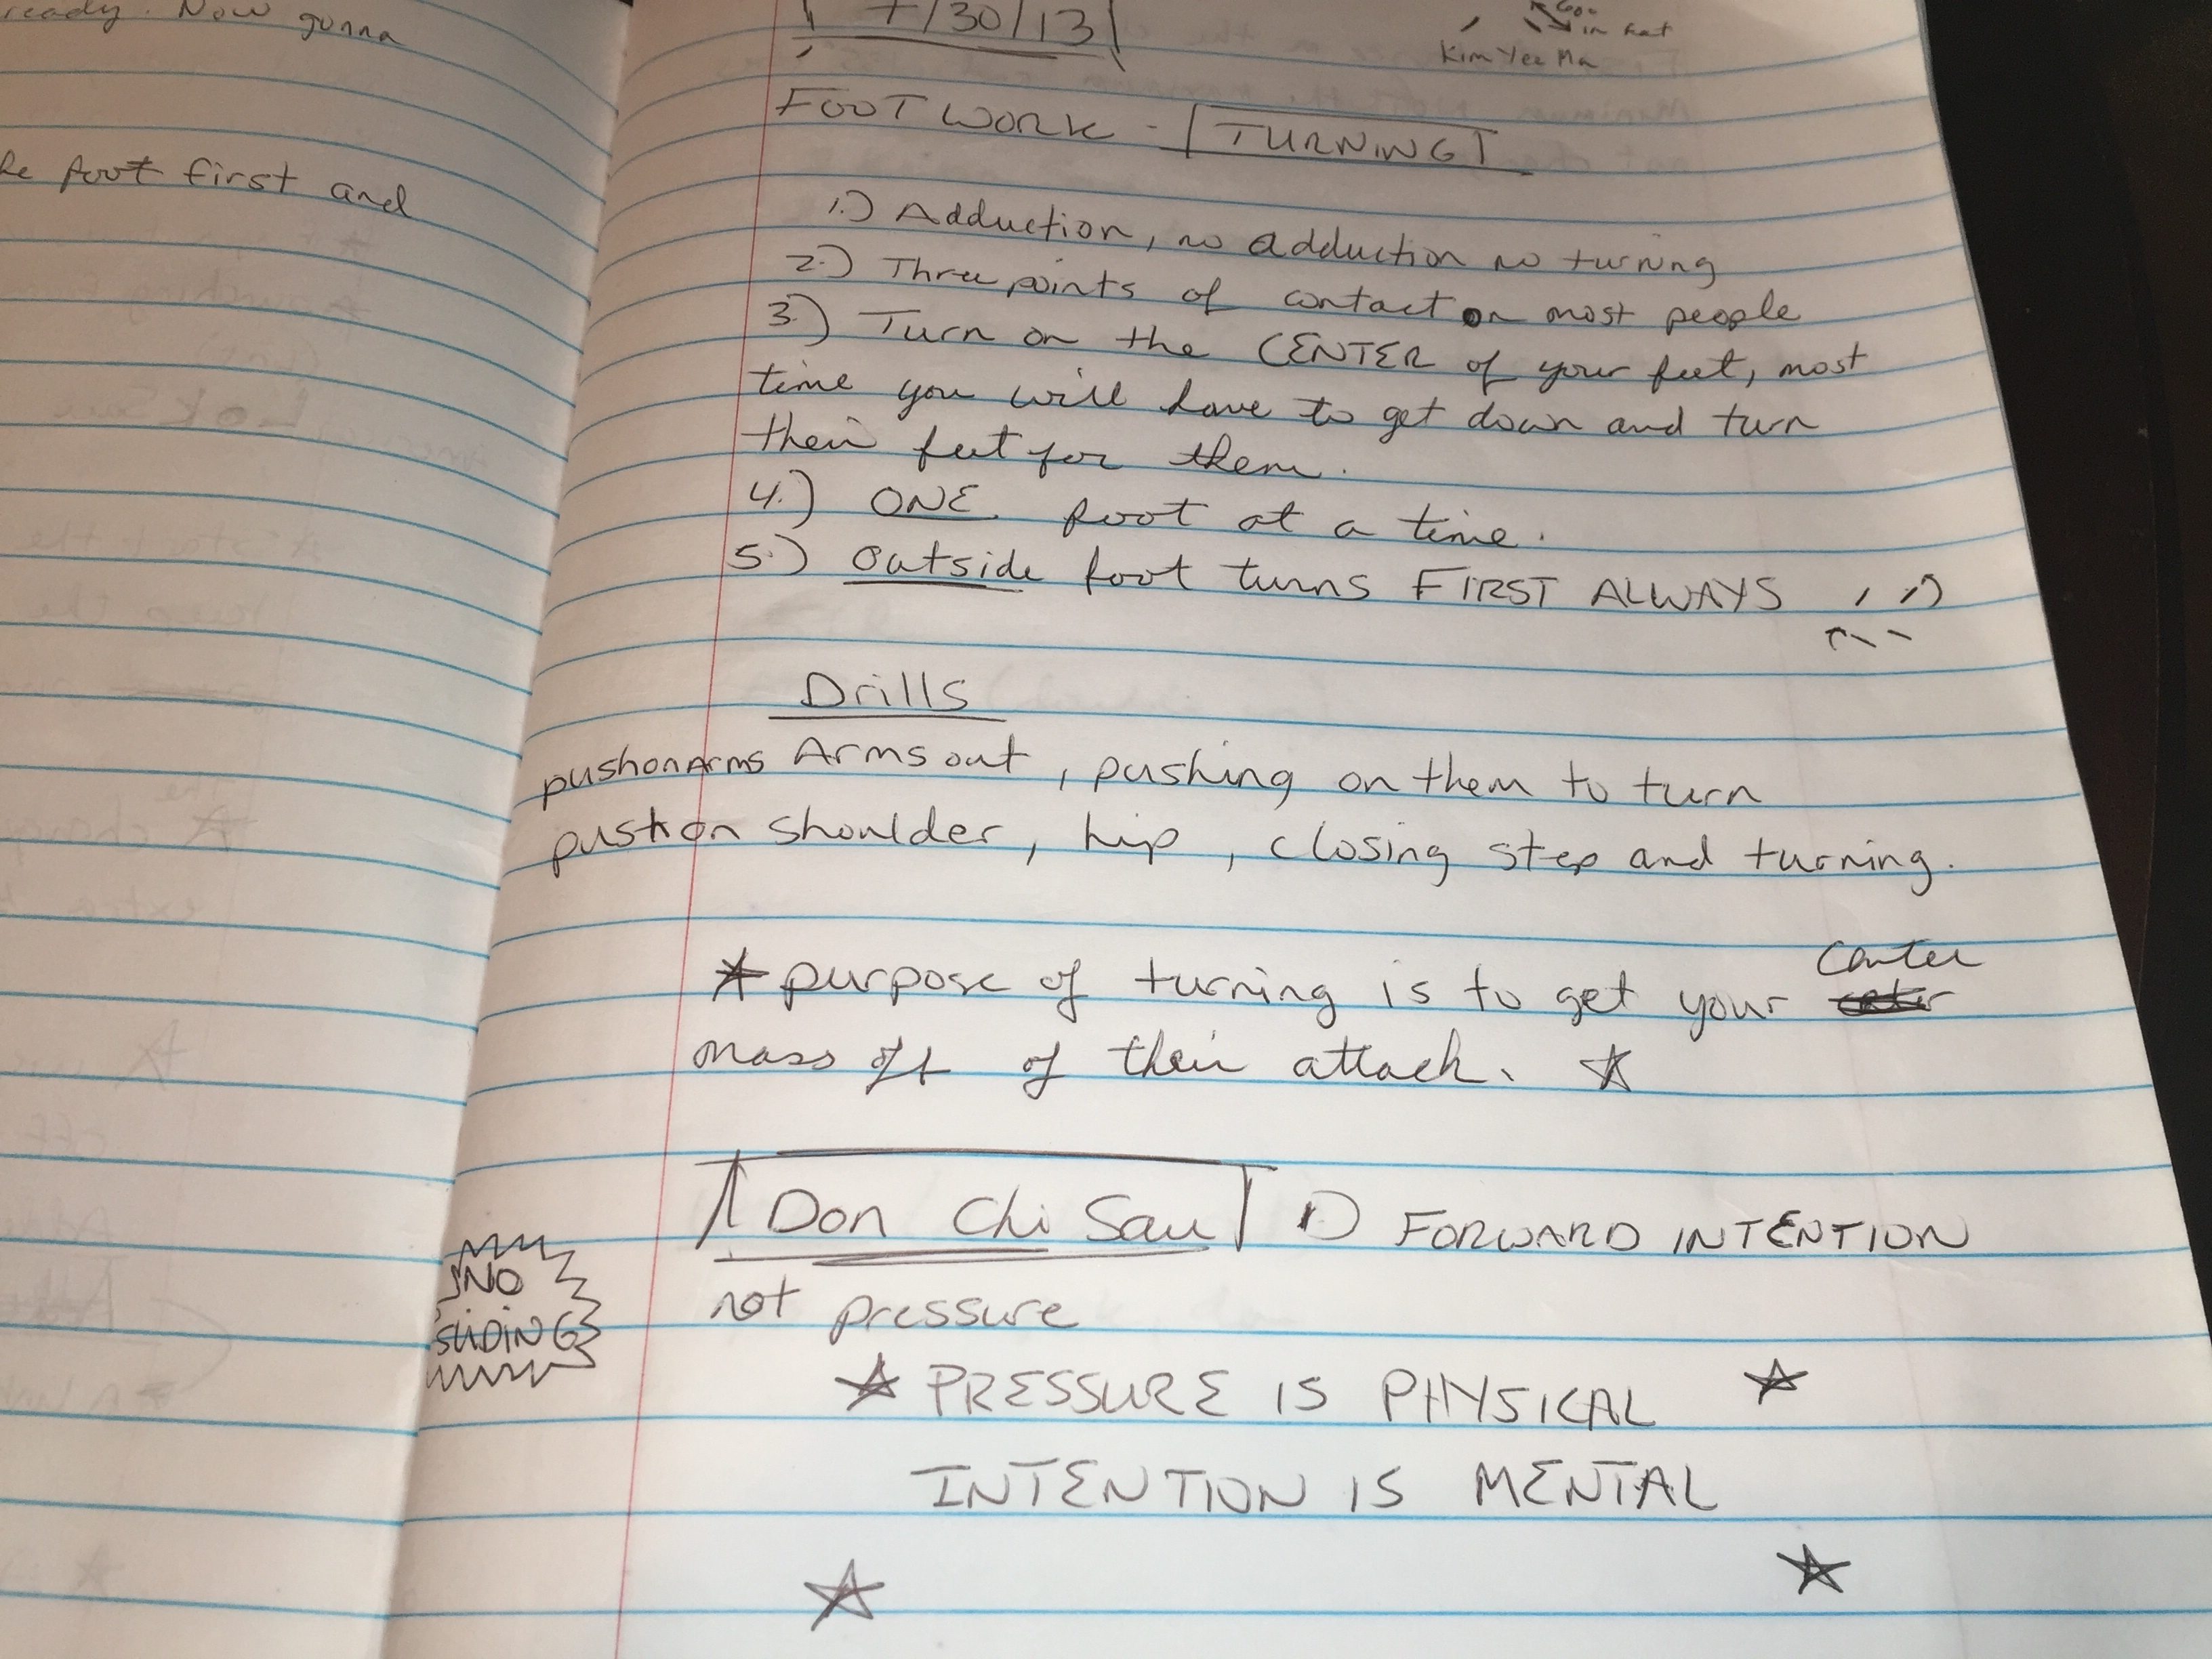 ready. Now gonna
foot first and
7/30/13
in feet
Kim Yee Ma
FOOTWORK - TURNING
1.) Adduction, no adduction no turning
2.) Three points of contact on most people
3.) Turn on the CENTER of your feet, most
time you will have to get down and turn
their feet for them.
4.) ONE foot at a time.
5.) Outside foot turns FIRST ALWAYS
Drills
push on Arms Arms out, pushing on them to turn
push on shoulder, hip, closing step and turning.
center
* purpose of turning is to get your
mass off of their attack. *
Don Chi Sau 1) FORWARD INTENTION
not pressure
NO
SLIDING
* PRESSURE IS PHYSICAL *
INTENTION IS MENTAL
* *